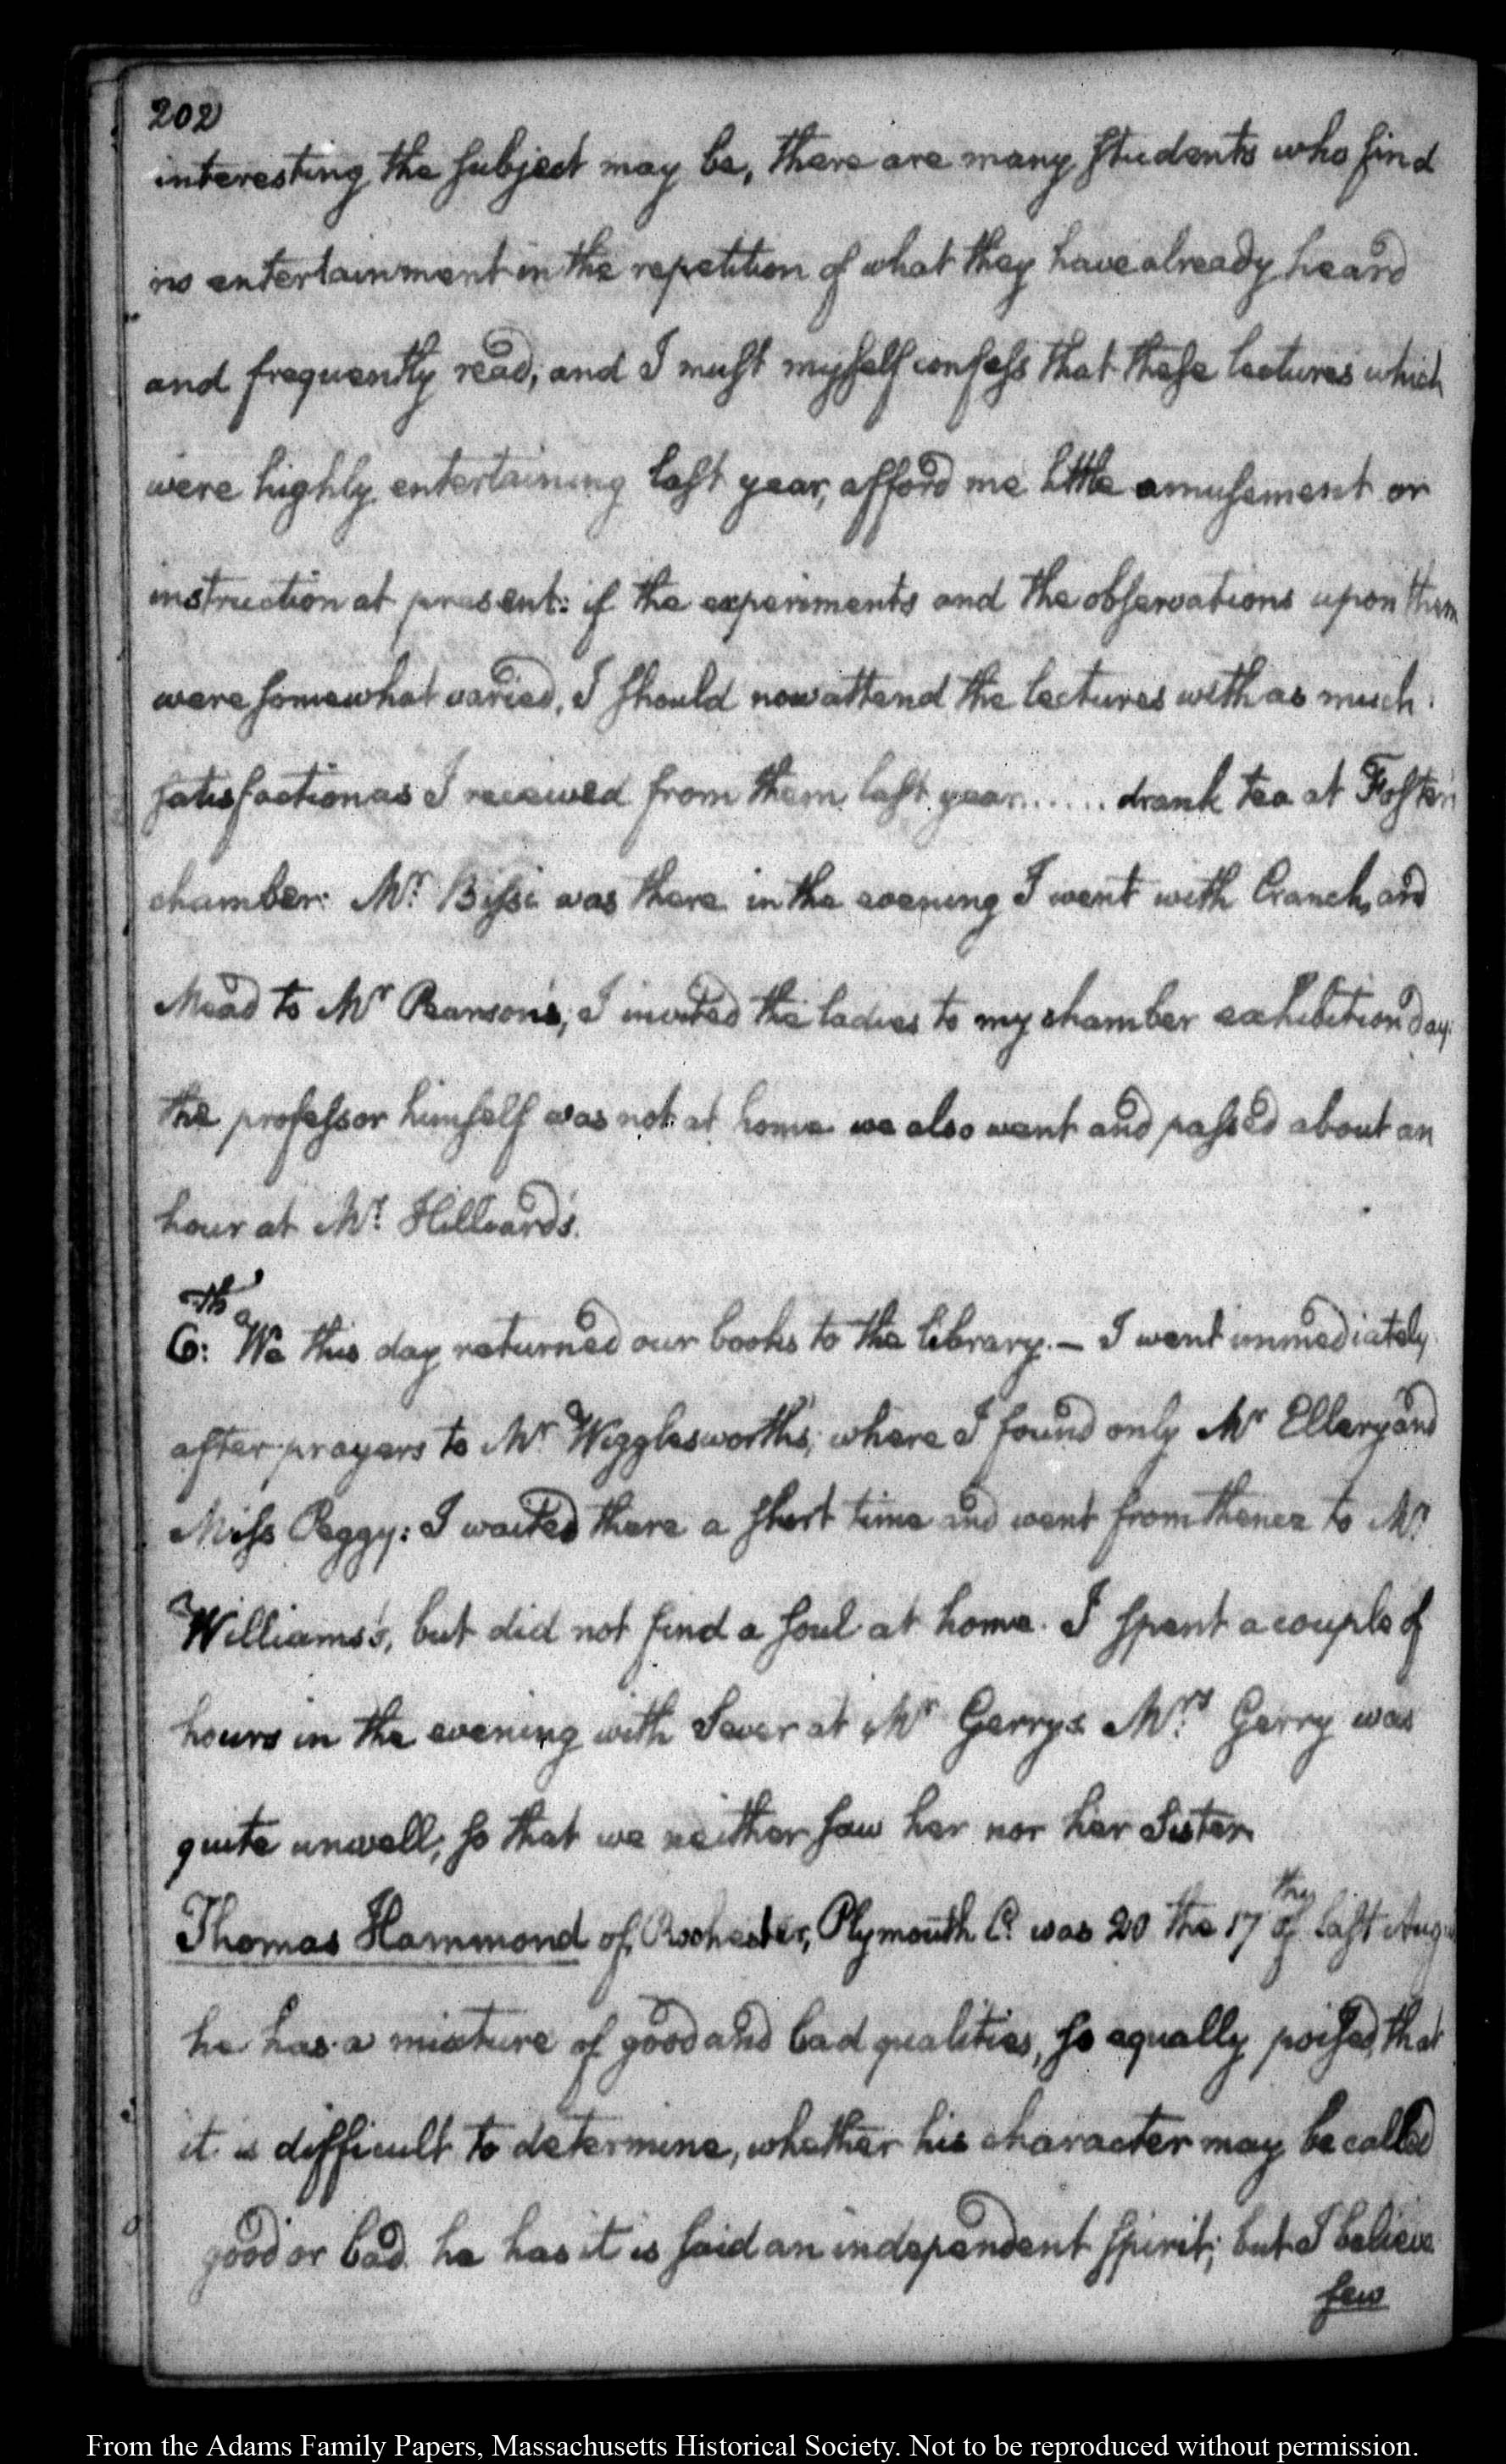 202
interesting the subject may be, there are many students who find
no entertainment in the repetition of what they have already heard
and frequently read, and I must myself confess that these lectures which
were highly entertaining last year, afford me little amusement or
instruction at present: if the experiments and the observations upon them
were somewhat varied, I should now attend the lectures with as much
satisfaction as I received from them last year...... drank tea at Foster's
chamber: Mr. Bissi was there in the evening I went with Cranch, and
Mead to Mr Pearson's, I invited the ladies to my chamber exhibition day.
the professor himself was not at home we also went and passed about an
hour at Mr. Hilliard's.
6th: We this day returned our books to the library. — I went immediately
after prayers to Mr Wigglesworth's; where I found only Mr Ellery and
Miss Peggy: I waited there a short time and went from thence to Mr.
Williams's, but did not find a soul at home. I spent a couple of
hours in the evening with Sever at Mr Gerrys. Mrs. Gerry was
quite unwell, so that we neither saw her nor her Sister.
Thomas Hammond of Rochester, Plymouth C. was 20 the 17th of last Aug
he has a mixture of good and bad qualities, so equally poised, that
it is difficult to determine, whether his character may be called
good or bad. he has it is said an independent spirit; but I believe
few
From the Adams Family Papers, Massachusetts Historical Society. Not to be reproduced without permission.